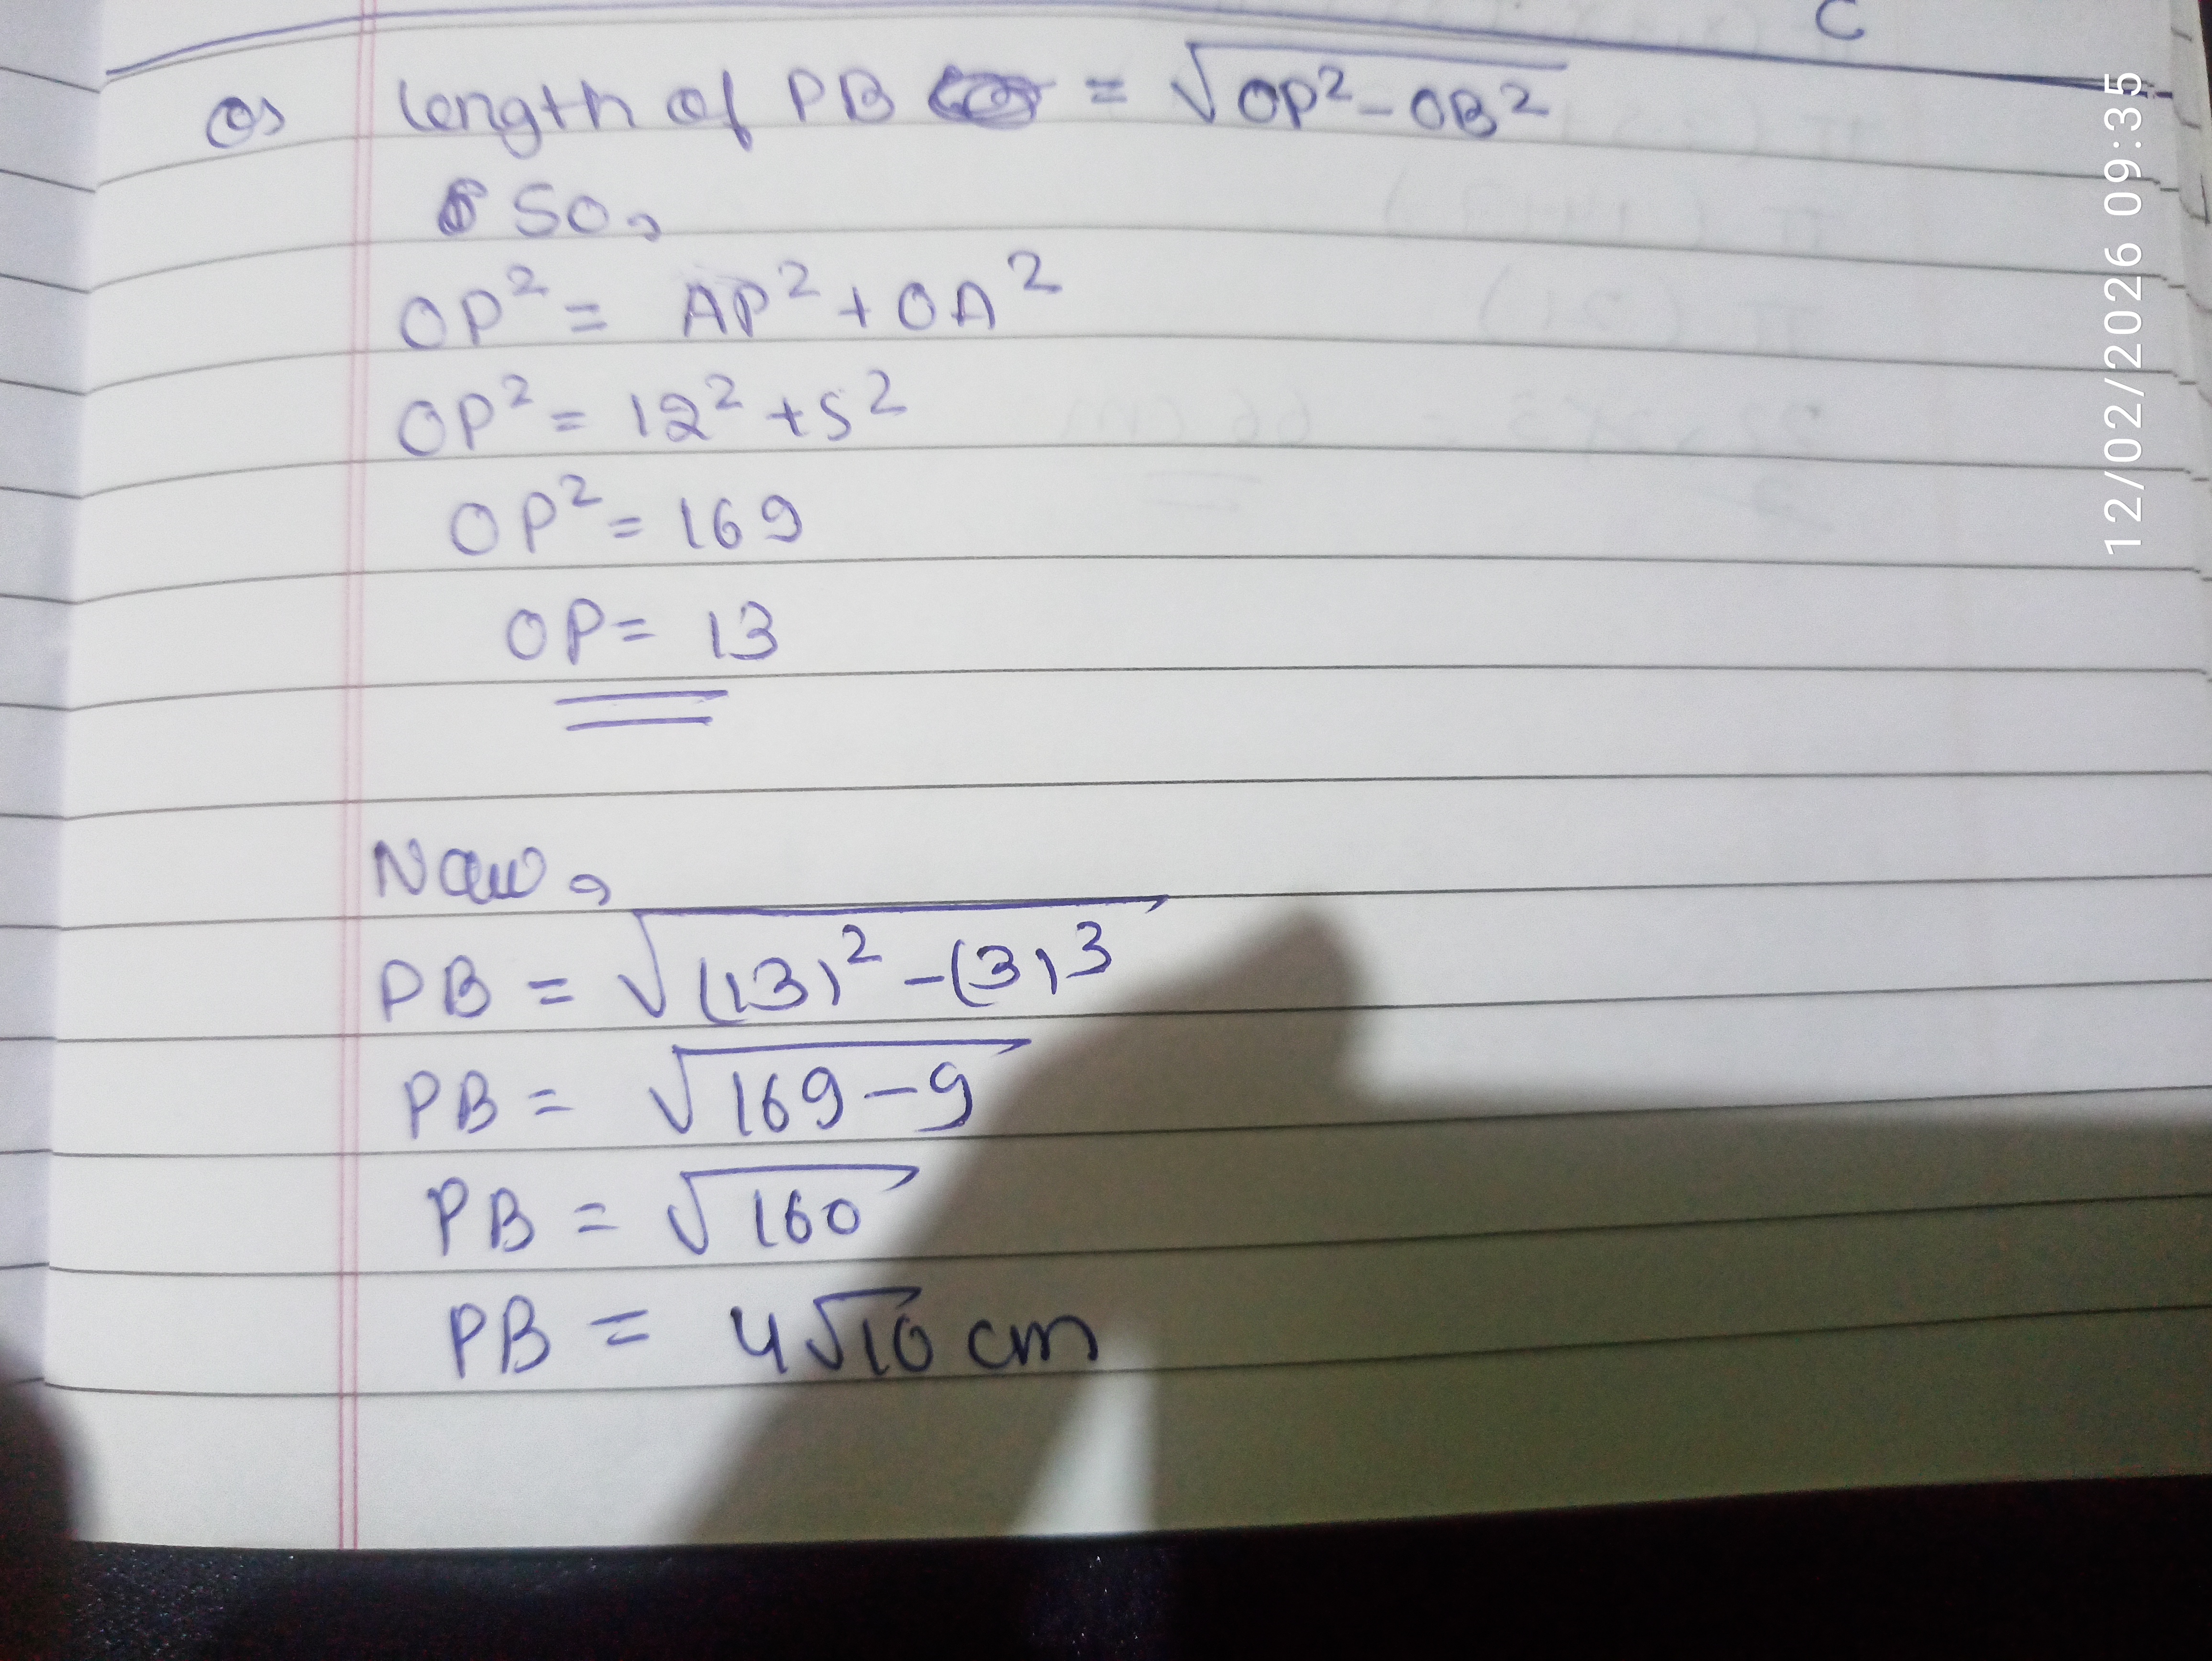 C
Os length of PB = √OP² - OB²
So,
OP² = AP² + OA²
OP² = 12² + 5²
OP² = 169
OP = 13
Now,
PB = √(13)² - (3)³
PB = √169 - 9
PB = √160
PB = 4√10 cm
12/02/2026 09:35